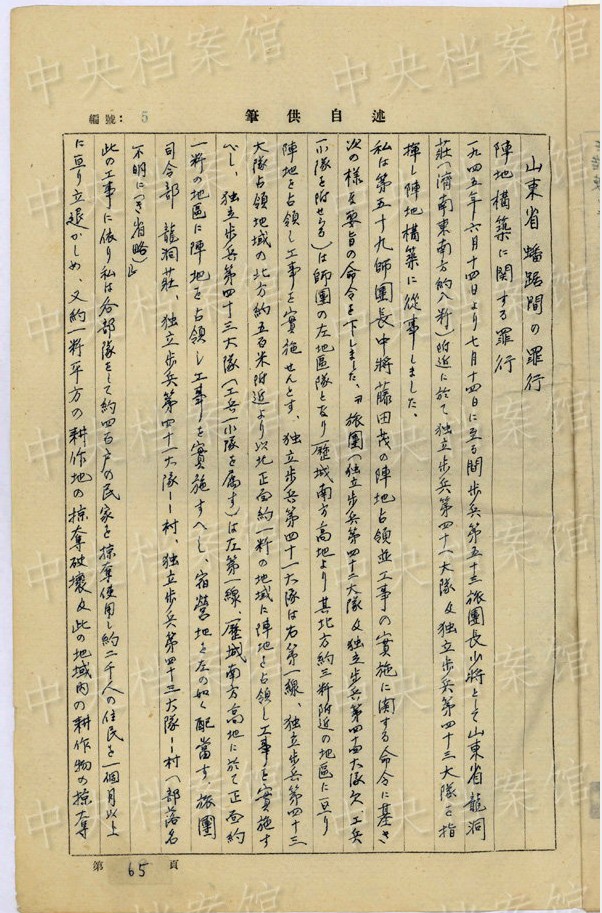 中央档案馆
編號: 5
筆供自述
山東省蟠踞間の罪行
陣地構築に関する罪行
一九四五年六月十四日より七月十四日に至る間歩兵第五十三旅團長少將として山東省龍洞
莊(濟南東南方約八粁)附近に於て独立歩兵第四十一大隊及独立歩兵第四十三大隊を指
揮し陣地構築に從事しました、
私は第五十九師團長中將藤田茂の陣地占領並工事の實施に関する命令に基き
次の様な要旨の命令を下しました、『旅團(独立歩兵第四十二大隊及独立歩兵第四十四大隊欠、工兵
一小隊を附せらる)は師團の左地區隊となり歴城南方高地より其北方約三粁附近の地區に亘り
陣地を占領し工事を實施せんとす、独立歩兵第四十一大隊は右第一線、独立歩兵第四十三
大隊占領地域の北方約五百米附近より以北正面約一粁の地域に陣地を占領し工事を實施す
べし、独立歩兵第四十三大隊(工兵一小隊を属す)は左第一線、歴城南方高地に於て正面約
一粁の地區に陣地を占領し工事を實施すへし、宿營地を左の如く配當す、旅團
司令部 龍洞莊、独立歩兵第四十一大隊——村、独立歩兵第四十三大隊——村(部落名
不明につき省略)』
此の工事に依り私は各部隊をして約四百戸の民家を掠奪使用し約二千人の住民を一個月以上
に亘り立退かしめ、又約一粁平方の耕作地の掠奪破壊及此の地域内の耕作物の掠奪
第 65 頁